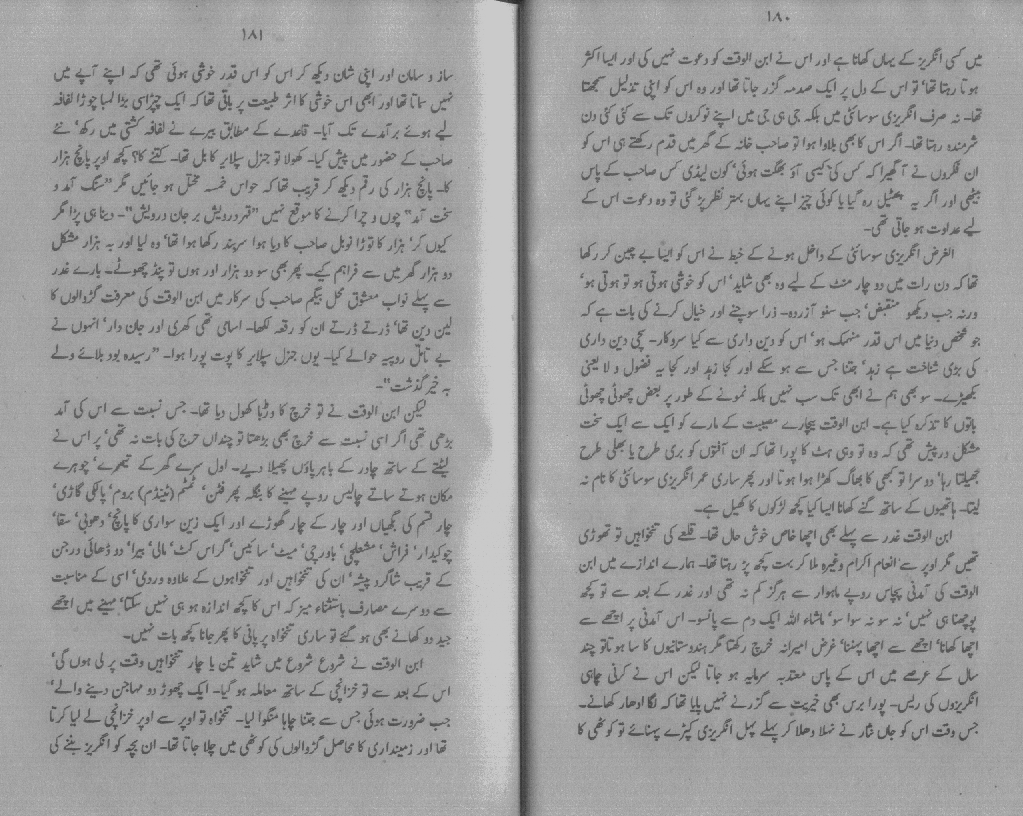 ۱۸۰
میں کسی انگریز کے یہاں کھانا ہے اور اس نے ابن الوقت کو دعوت نہیں کی اور ایسا اکثر
ہوتا رہتا تھا' تو اس کے دل پر ایک صدمہ گزر جاتا تھا اور وہ اس کو اپنی تذلیل سمجھتا
تھا۔ نہ صرف انگریزی سوسائٹی میں بلکہ جی ہی جی میں اپنے نوکروں تک سے کئی کئی دن
شرمندہ رہتا تھا۔ اگر اس کا بھی بلاوا ہوا تو صاحب خانہ کے گھر میں قدم رکھتے ہی اس کو
ان فکروں نے آ گھیرا کہ کس کی کیسی آؤ بھگت ہوئی' کون لیڈی کس صاحب کے پاس
بیٹھی اور اگر یہ پھٹیل رہ گیا یا کوئی چیز اپنے یہاں بہتر نظر پڑ گئی تو وہ دعوت اس کے
لیے عداوت ہو جاتی تھی۔
الغرض انگریزی سوسائٹی کے داخل ہونے کے خبط نے اس کو ایسا بے چین کر رکھا
تھا کہ دن رات میں دو چار منٹ کے لیے وہ بھی شاید' اس کو خوشی ہوتی ہو تو ہوتی ہو'
ورنہ جب دیکھو منقبض' جب سنو آزردہ۔ ذرا سوچنے اور خیال کرنے کی بات ہے کہ
جو شخص دنیا میں اس قدر منہمک ہو' اس کو دین داری سے کیا سروکار۔ سچی دین داری
کی بڑی شناخت ہے زہد' جتنا جس سے ہو سکے اور کجا زہد اور کجا یہ فضول و لا یعنی
بکھیڑے۔ سو بھی ہم نے ابھی تک سب نہیں بلکہ نمونے کے طور پر بعض چھوٹی چھوٹی
باتوں کا تذکرہ کیا ہے۔ ابن الوقت بیچارے مصیبت کے مارے کو ایک سے ایک سخت
مشکل درپیش تھی کہ وہ تو وہی ہٹ کا پورا تھا کہ ان آفتوں کو بری طرح یا بھلی طرح
جھیلتا رہا' دوسرا تو کبھی کا بھاگ کھڑا ہوا ہوتا اور پھر ساری عمر انگریزی سوسائٹی کا نام نہ
لیتا۔ ہاتھیوں کے ساتھ گنے کھانا ایسا کیا کچھ لڑکوں کا کھیل ہے۔
ابن الوقت غدر سے پہلے بھی اچھا خاصا خوش حال تھا۔ قلعے کی تنخواہیں تو تھوڑی
تھیں مگر اوپر سے انعام اکرام وغیرہ ملا کر بہت کچھ پڑ رہتا تھا۔ ہمارے اندازے میں ابن
الوقت کی آمدنی پچاس روپے ماہوار سے ہرگز کم نہ تھی اور غدر کے بعد سے تو کچھ
پوچھنا ہی نہیں' نہ سو نہ سوا سو' ماشاء اللہ ایک دم سے پانسو۔ اس آمدنی پر اچھے سے
اچھا کھانا' اچھے سے اچھا پہننا' غرض امیرانہ خرچ رکھتا مگر ہندوستانیوں کا سا ہوتا تو چند
سال کے عرصے میں اس کے پاس معتدبہ سرمایہ ہو جاتا لیکن اس نے کرنی چاہی
انگریزوں کی ریس۔ پورا برس بھی خیریت سے گزرنے نہیں پایا تھا کہ لگا ادھار کھانے۔
جس وقت اس کو جاں نثار نے نہلا دھلا کر پہلے پہل انگریزی کپڑے پہنائے تو کوٹھی کا
۱۸۱
ساز و سامان اور اپنی شان دیکھ کر اس کو اس قدر خوشی ہوئی تھی کہ اپنے آپے میں
نہیں سماتا تھا اور ابھی اس خوشی کا اثر طبیعت پر باقی تھا کہ ایک چپڑاسی بڑا لمبا چوڑا لفافہ
لیے ہوئے برآمدے تک آیا۔ قاعدے کے مطابق بیرے نے لفافہ کشتی میں رکھ' نئے
صاحب کے حضور میں پیش کیا۔ کھولا تو جنرل سپلائیر کا بل تھا۔ کتنے کا؟ کچھ اوپر پانچ ہزار
کا۔ پانچ ہزار کی رقم دیکھ کر قریب تھا کہ حواس خمسہ مختل ہو جائیں مگر "سنگ آمد و
سخت آمد" چوں و چرا کرنے کا موقع نہیں "قہر درویش بر جان درویش"۔ دینا ہی پڑا مگر
کیوں کر' ہزار کا توڑا نوبل صاحب کا دیا ہوا سربند رکھا ہوا تھا' وہ لیا اور بہ ہزار مشکل
دو ہزار گھر میں سے فراہم کیے۔ پھر بھی سو دو ہزار اور ہوں تو پنڈ چھوٹے۔ بارے غدر
سے پہلے نواب معشوق محل بیگم صاحب کی سرکار میں ابن الوقت کی معرفت گڑوالوں کا
لین دین تھا' ڈرتے ڈرتے ان کو رقعہ لکھا۔ اسامی تھی کھری اور جان دار' انہوں نے
بے تامل روپیہ حوالے کیا۔ یوں جنرل سپلایر کا پوت پورا ہوا۔ "رسیدہ بود بلائے ولے
بہ خیر گذشت"۔
لیکن ابن الوقت نے تو خرچ کا دڑبا کھول دیا تھا۔ جس نسبت سے اس کی آمد
بڑھی تھی اگر اسی نسبت سے خرچ بھی بڑھتا تو چنداں حرج کی بات نہ تھی' پر اس نے
لیٹتے کے ساتھ چادر کے باہر پاؤں پھیلا دیے۔ اول سرے گھر کے تیھرے' چوہرے
مکان ہوتے ساتے چالیس روپے مہینے کا بنگلہ پھر فٹن' ٹمٹم (ٹینڈم) بروم' پالکی گاڑی'
چار قسم کی بگھیاں اور چار کے چار گھوڑے اور ایک زین سواری کا پانچ' دھوبی' سقا'
چوکیدار' فراش' مشعلچی' باورچی' میٹ' سائیس' گراس کٹ' مالی' بیرا' دو ڈھائی درجن
کے قریب شاگرد پیشہ' ان کی تنخواہیں اور تنخواہوں کے علاوہ وردی' اسی کے مناسبت
سے دوسرے مصارف باستثناء میز کہ اس کا کچھ اندازہ ہو ہی نہیں سکتا' مہینے میں اچھے
جید دو کھانے بھی ہو گئے تو ساری تنخواہ پر پانی کا پھر جانا کچھ بات نہیں۔
ابن الوقت نے شروع شروع میں شاید تین یا چار تنخواہیں وقت پر لی ہوں گی'
اس کے بعد سے تو خزانچی کے ساتھ معاملہ ہو گیا۔ ایک چھوڑ دو مہاجن دینے والے'
جب ضرورت ہوئی جس سے جتنا چاہا منگوا لیا۔ تنخواہ تو اوپر سے اوپر خزانچی لے لیا کرتا
تھا اور زمینداری کا محاصل گڑوالوں کی کوٹھی میں چلا جاتا تھا۔ ان بچہ کو انگریز بننے کی